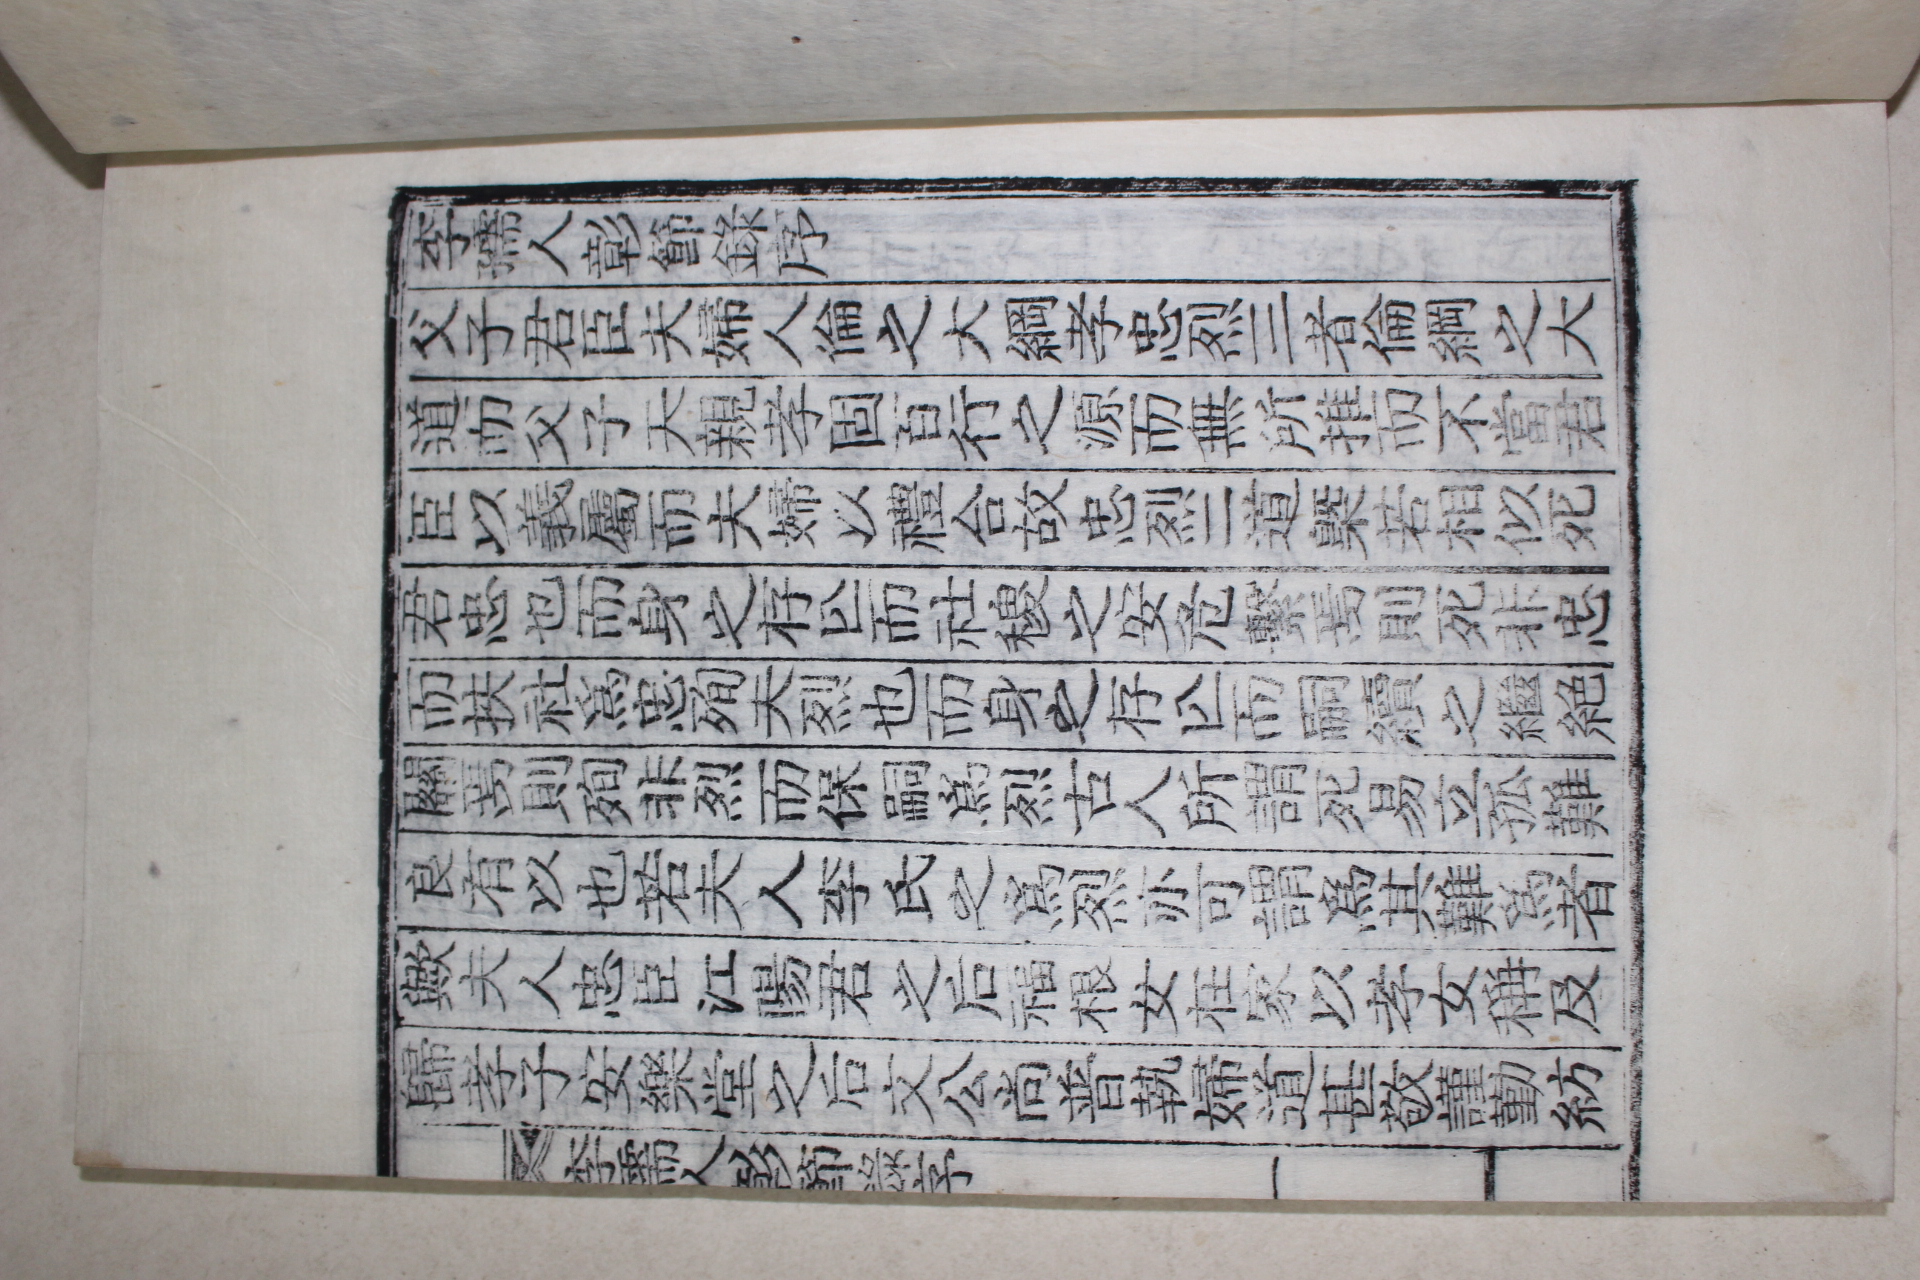 李孺人彰節錄序
父子君臣夫婦人倫之大綱孝忠烈三者倫綱之大
道而父子天親孝固百行之源而無所推而不當君
臣以義屬而夫婦以禮合故忠烈二道槩若相似死
君忠也而身之存亡而社稷之安危繫焉則死非忠
而扶社爲忠殉夫烈也而身之存亡而嗣續之繼絶
關焉則殉非烈而保嗣爲烈古人所謂死易立孤難
良有以也若夫人李氏之爲烈亦可謂爲其難爲者
歟夫人忠臣江陽君之后禧根女在家以孝女稱及
歸孝子安樂堂之后文公尚普執婦道甚敬謹勤紡
李孺人彰節錄序
一